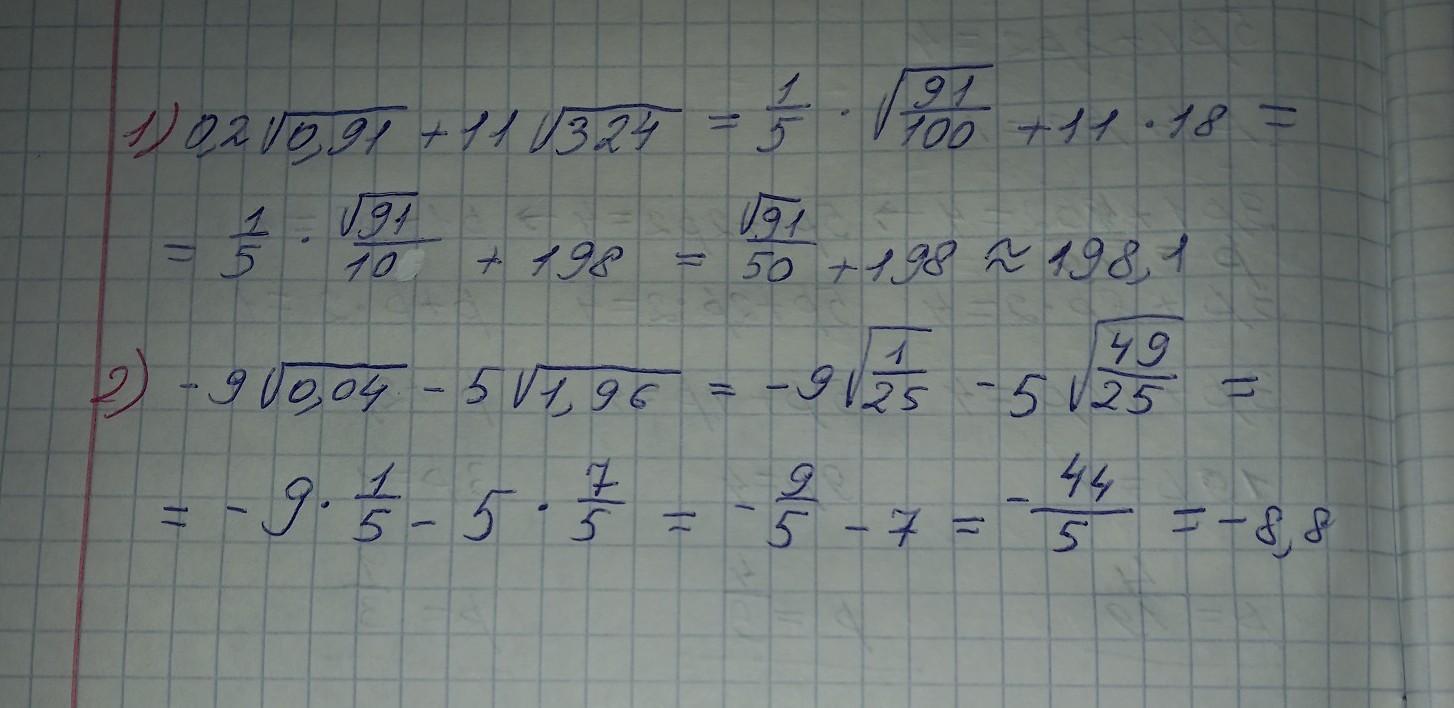 1) 0,2√0,91 + 11√324 = 1/5 · √(91/100) + 11 · 18 =
= 1/5 · √91/10 + 198 = √91/50 + 198 ≈ 198,1
2) -9√0,04 - 5√1,96 = -9√(1/25) - 5√(49/25) =
= -9 · 1/5 - 5 · 7/5 = -9/5 - 7 = -44/5 = -8,8